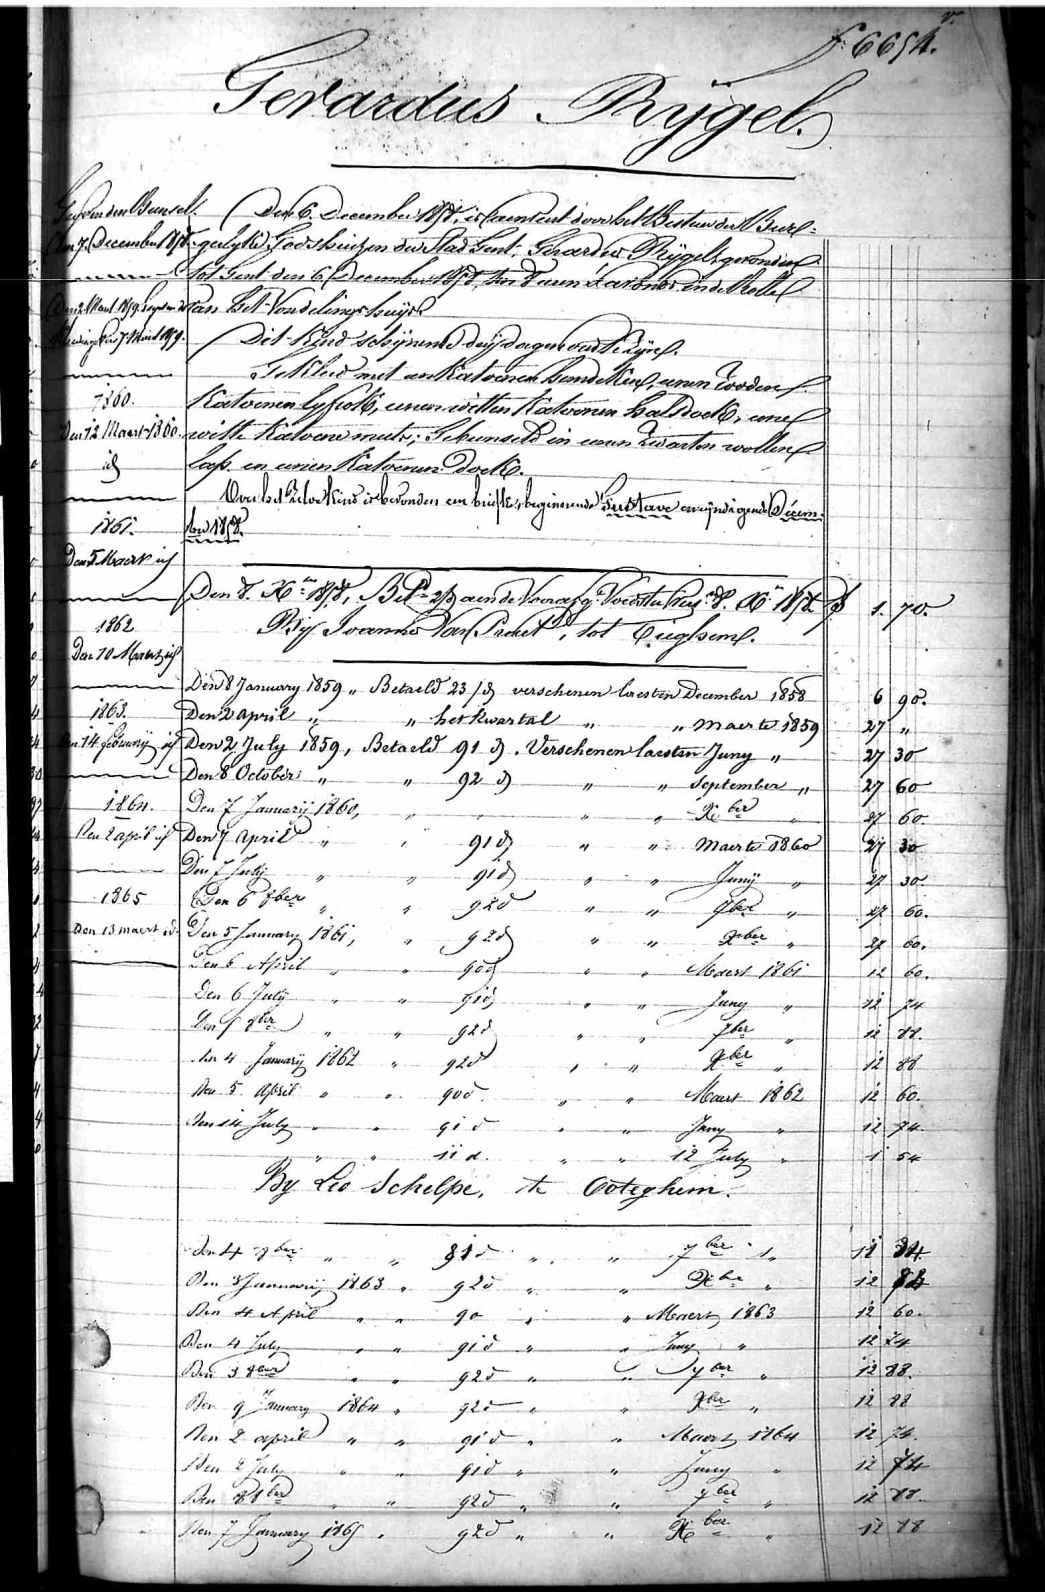 fº 6654. vº
Gerardus Rÿgel.
Gezonden Bunsel.
den 7 December 1858.
Den 2 Maert 1859
7 Maert 1859.
1860.
Den 12 Maert 1860.
id
1861.
Den 5 Maert id
1862
Den 10 Maert id
1863.
Den 14 february id
1864.
Den 2 april id
1865
Den 13 maert id.
Den 6. December 1858, is door het Bestuer der Burgerlyke Godshuizen der Stad Gent, Gerardus Rÿgel, gevonden
tot Gent den 6 December 1858, ten 8 uren 's avonds in de Rolle
van het Vondelingshuys
Dit Kind schÿnende drÿ dagen oud te zÿn.
Gekleed met een Katoenen hemdeken, eenen rooden
Katoenen lyfrok, eenen witten Katoenen halsdoek, eene
witte Katoene muts; Gebunseld in eenen zwarten wollen
lap, en eenen Katoenen doek.
Op het zelve kind is bevonden een briefke, beginnende Gustave en eÿndigende Décem-
ber 1858.
Den 8. Xbre 1858, Bet. aen de Voorafg. Voedster 8. Xr 1858 f 1. 70.
By Joannes Van Praet, tot Tieghem.
Den 8 January 1859 „ Betaeld 23/d verschenen laesten December 1858 6 90.
Den 2 april „ „ het kwartal „ „ Maerte 1859 27 „
Den 2 July 1859, Betaeld 91 d. Verschenen laesten Juny „ 27 30
Den 8 October „ „ 92 d „ „ September „ 27 60
Den 7 Januarÿ 1860, „ „ „ „ Xber „ 27 60
Den 7 April „ „ 91 d „ „ Maerte 1860 27 30
Den 7 July „ „ 91 d „ „ Junÿ „ 27 30
Den 6 8ber „ „ 92 d „ „ 7ber „ 27 60.
Den 5 January 1861, „ 92 d „ „ Xber „ 27 60.
Den 6 April „ „ 90 d „ „ Maert 1861 12 60.
Den 6 July „ „ 91 d „ „ Juny „ 12 74
Den 5 8ber „ „ 92 d „ „ 7ber „ 12 88.
Den 4 January 1862 „ 92 d „ „ Xber „ 12 88
Den 5 April „ „ 90 d. „ „ Maert 1862 12 60.
Den 14 July „ „ 91 d „ „ Juny „ 12 74.
„ „ 11 d. „ „ 12 July „ 1 54
By Leo Schelpe, te Ooteghem.
Den 4 8ber „ „ 81 d „ „ 7ber „ 11 34
Den 3 Januarÿ 1863 „ 92 d „ „ Xber „ 12 88
Den 4 April „ „ 90 „ „ Maert 1863 12 60.
Den 4 July „ „ 91 d „ „ Juny „ 12 74
Den 3 8ber „ „ 92 d „ „ 7ber „ 12 88.
Den 9 January 1864 „ 92 d „ „ Xber „ 12 88
Den 2 april „ „ 91 d „ „ Maert 1864 12 74.
Den 2 July „ „ 91 d „ „ Juny „ 12 74
Den 8 8ber „ „ 92 d „ „ 7ber „ 12 88.
Den 7 January 1865 „ 92 d „ „ Xber „ 12 88